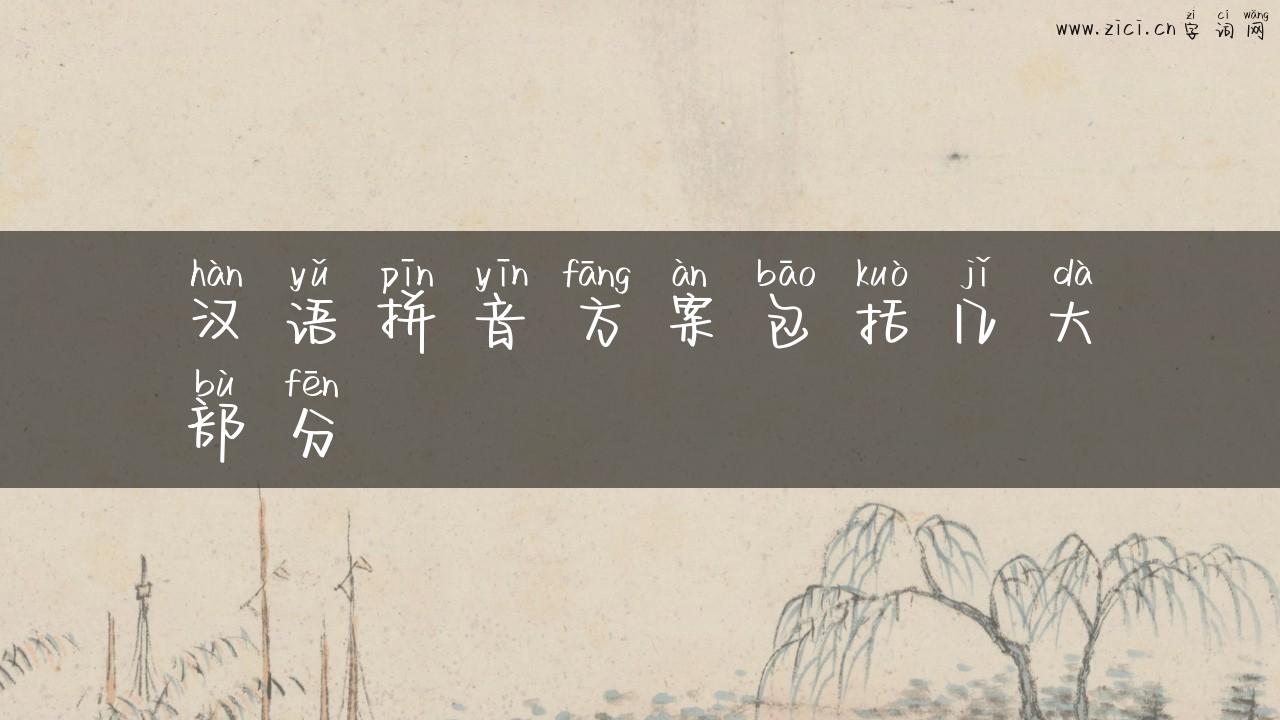 zì cí wǎng
www.zici.cn 字词网
hàn yǔ pīn yīn fāng àn bāo kuò jǐ dà
汉语拼音方案包括几大
bù fēn
部分